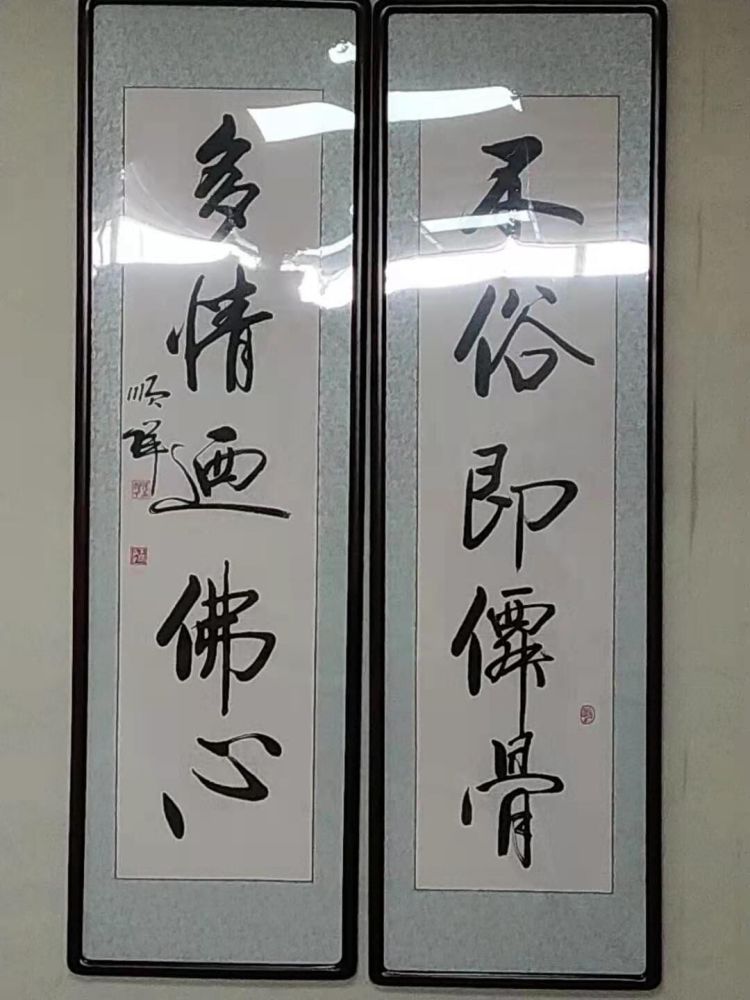 不俗即僊骨
多情廼佛心
顺祥